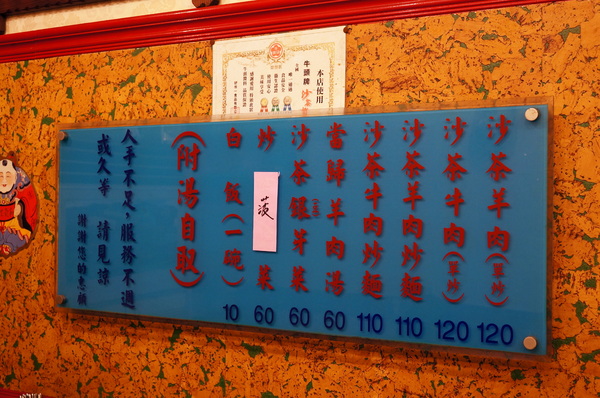 本店使用
牛頭牌 沙
沙茶羊肉(單炒) 120
沙茶牛肉(單炒) 120
沙茶羊肉炒麵 110
沙茶牛肉炒麵 110
當歸羊肉湯 60
沙茶銀芽菜 60
炒菠菜 60
白飯(一碗) 10
(附湯自取)
人手不足,服務不週
或久等 請見諒
謝謝您的惠顧